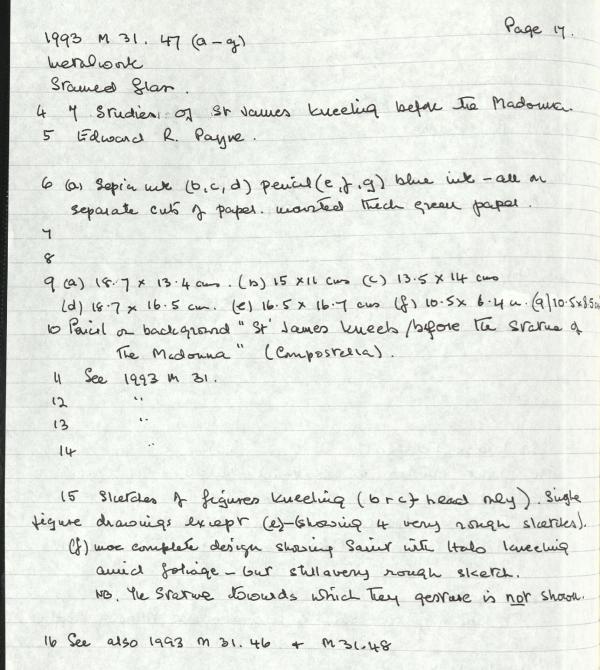 Page 17.
1993 M 31. 47 (a-g)
Metalwork
Stained Glass.
4 7 Studies of St James kneeling before the Madonna.
5 Edward R. Payne.
6 (a) Sepia ink (b,c,d) pencil (e,f,g) blue ink - all on
separate cuts of paper. mounted thick green paper.
7
8
9 (a) 18.7 x 13.4 cms. (b) 15 x 11 cms (c) 13.5 x 14 cms
(d) 18.7 x 16.5 cm. (e) 16.5 x 16.7 cms (f) 10.5 x 6.4 c. (g) 10.5x8.5cm
10 Pencil on background "St James kneels / before the statue of
the Madonna" (Compostella).
11 See 1993 M 31.
12 "
13 "
14 "
15 Sketches of figures kneeling (b + c + head only). Single
figure drawings except (e) - (showing 4 very rough sketches).
(f) more complete design showing Saint with Halo kneeling
amid foliage - but still a very rough sketch.
NB. The Statue towards which they gesture is not shown.
16 See also 1993 M 31.46 + M 31.48